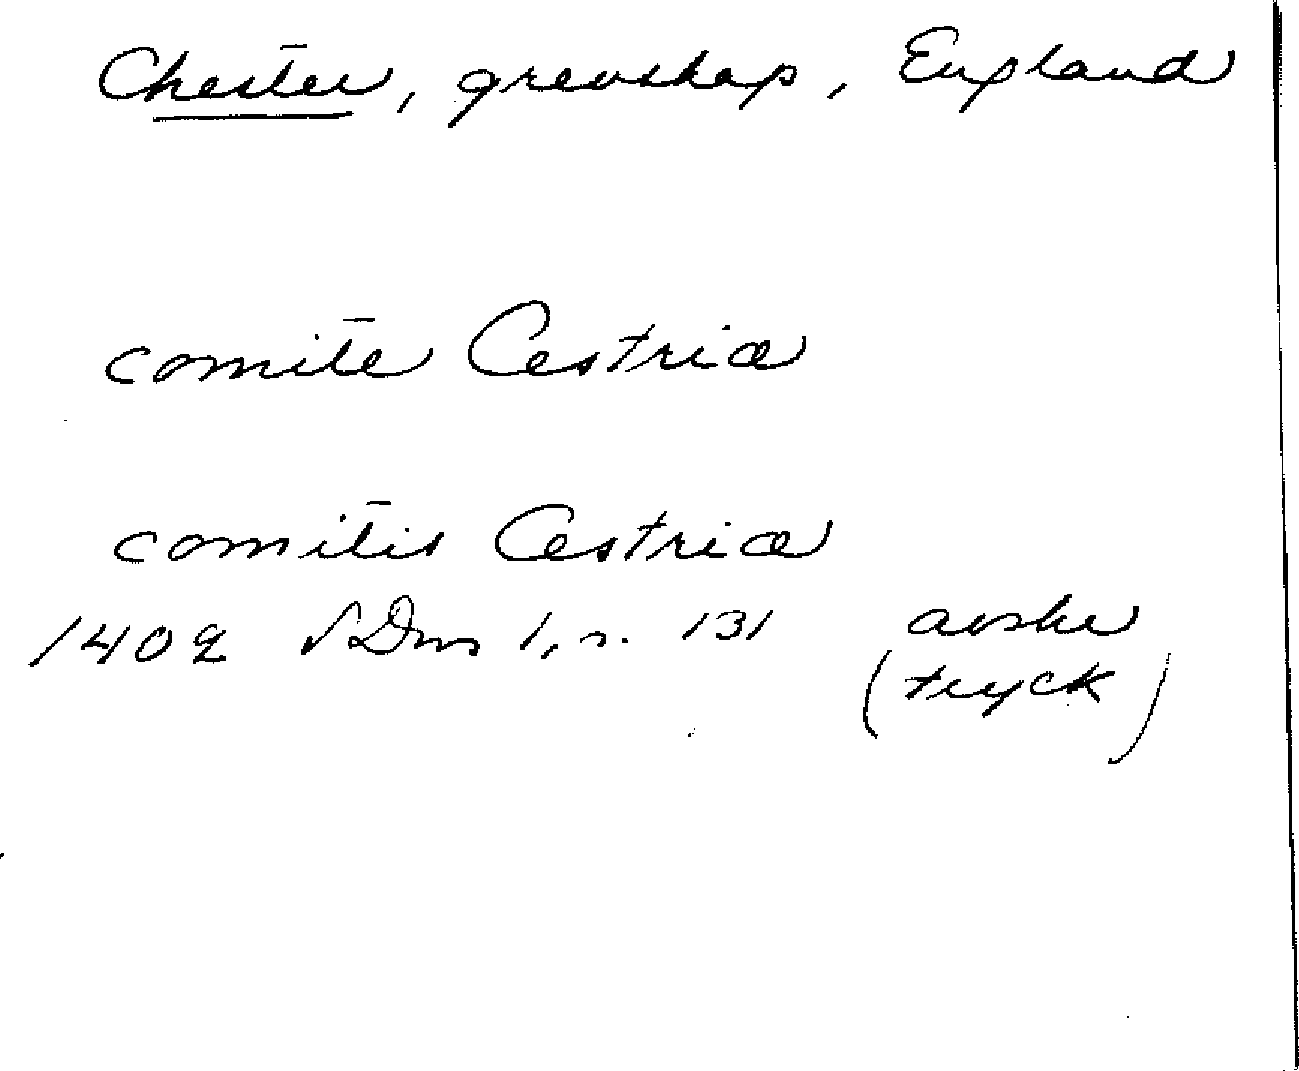 Chester, grevskap, England
comite Cestriæ
comitis Cestriæ
1402 SDns 1, s. 131 avskr
(tryck)